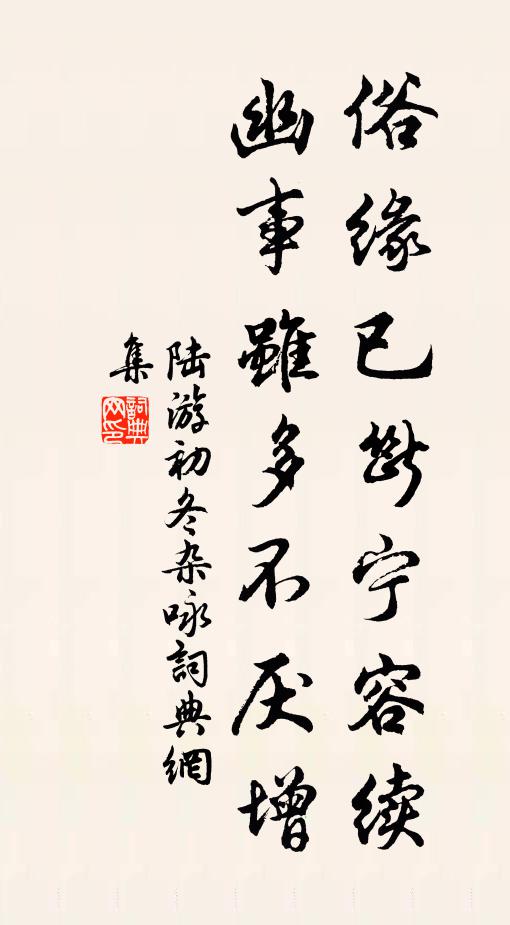 俗缘已断宁容续
幽事雖多不厌增
陆游初冬杂咏詞典網
集
詞典
网印